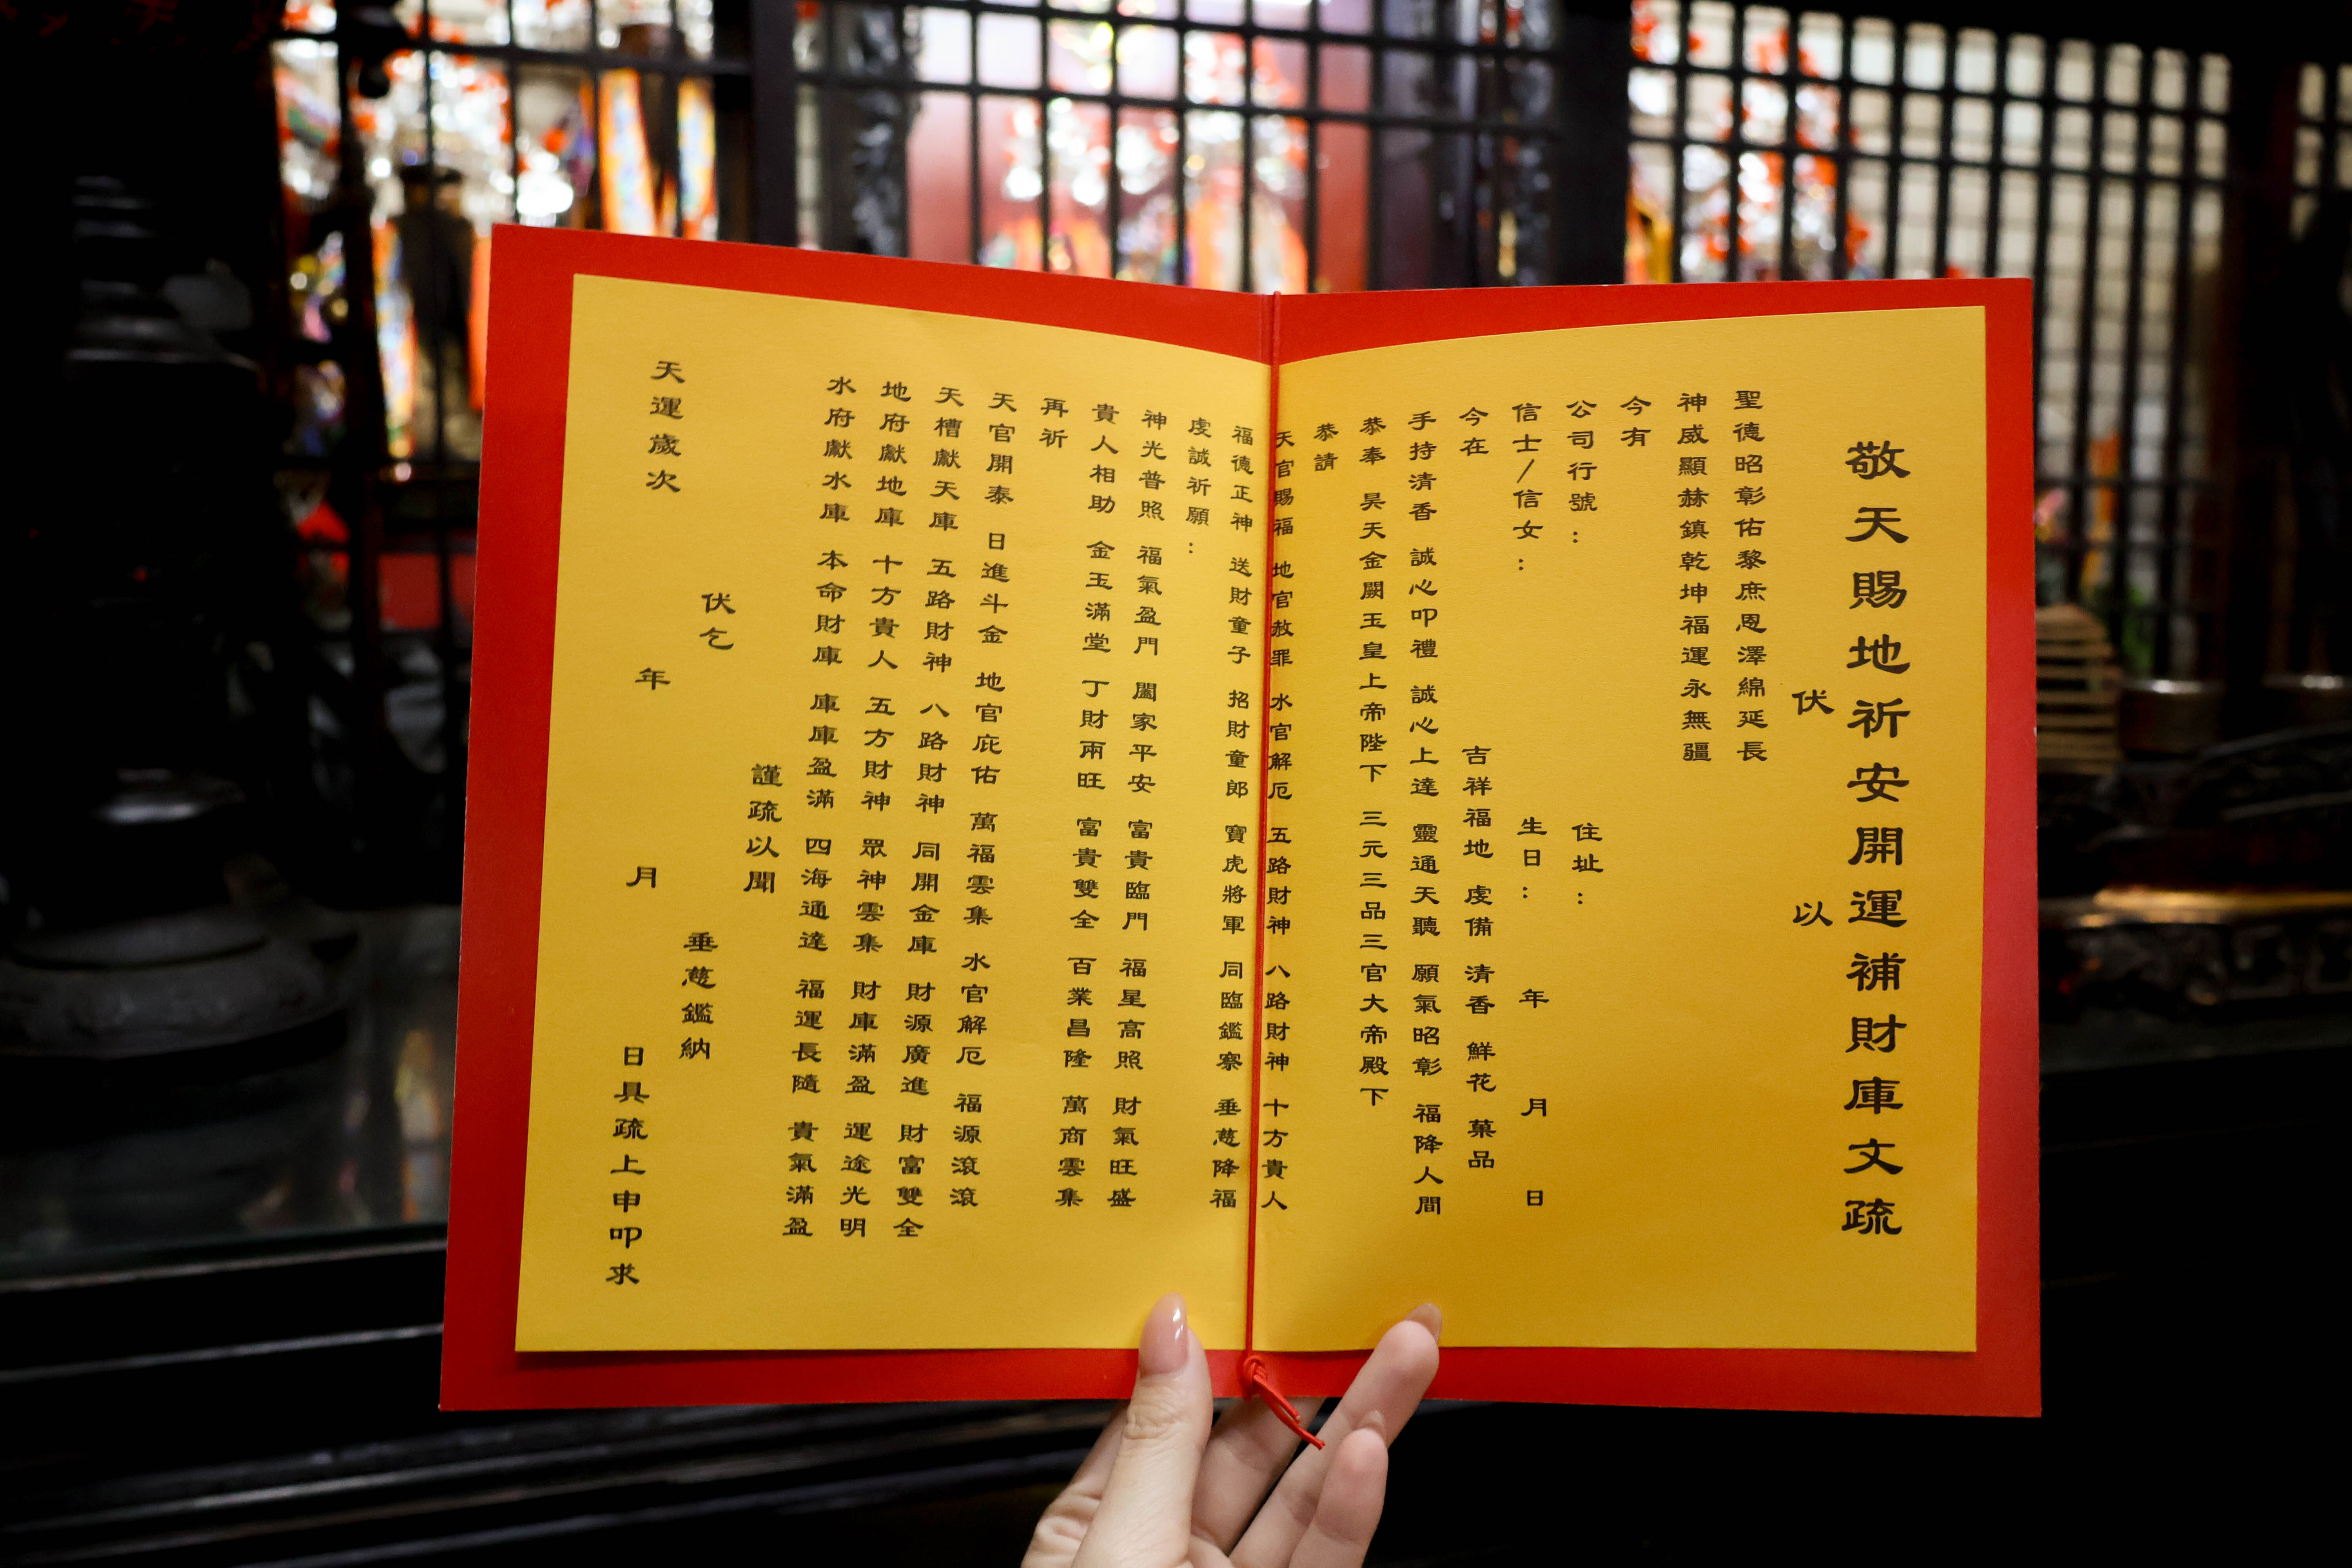 敬天賜地祈安開運補財庫文疏
伏 以
聖德昭彰佑黎庶恩澤綿延長
神威顯赫鎮乾坤福運永無疆
今有
公司行號: 住址:
信士/信女: 生日: 年 月 日
今在 吉祥福地 虔備 清香 鮮花 菓品
手持清香 誠心叩禮 誠心上達 靈通天聽 願氣昭彰 福降人間
恭奉 昊天金闕玉皇上帝陛下 三元三品三官大帝殿下
恭請
天官賜福 地官赦罪 水官解厄 五路財神 八路財神 十方貴人
福德正神 送財童子 招財童郎 寶虎將軍 同臨鑑察 垂慈降福
虔誠祈願:
神光普照 福氣盈門 闔家平安 富貴臨門 福星高照 財氣旺盛
貴人相助 金玉滿堂 丁財兩旺 富貴雙全 百業昌隆 萬商雲集
再祈
天官開泰 日進斗金 地官庇佑 萬福雲集 水官解厄 福源滾滾
天槽獻天庫 五路財神 八路財神 同開金庫 財源廣進 財富雙全
地府獻地庫 十方貴人 五方財神 眾神雲集 財庫滿盈 運途光明
水府獻水庫 本命財庫 庫庫盈滿 四海通達 福運長隨 貴氣滿盈
謹疏以聞
伏乞 垂慈鑑納
天運歲次 年 月 日具疏上申叩求